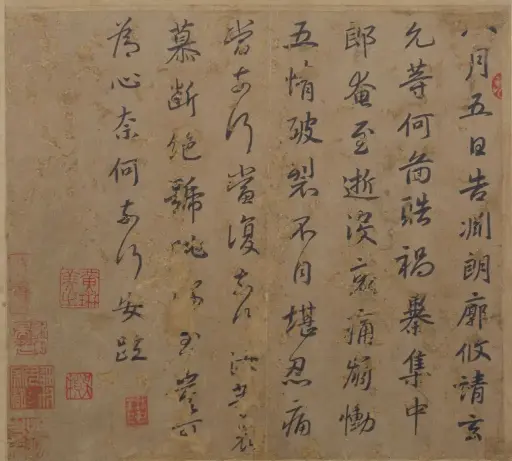 八月五日告淵朗廓攸靖玄
允等何圖酷禍暴集中
郎奄至逝沒哀痛崩慟
五情破裂不自堪忍痛
當奈何當復奈何汝等哀
慕斷絕號咷深至豈可
為心奈何奈何安疏